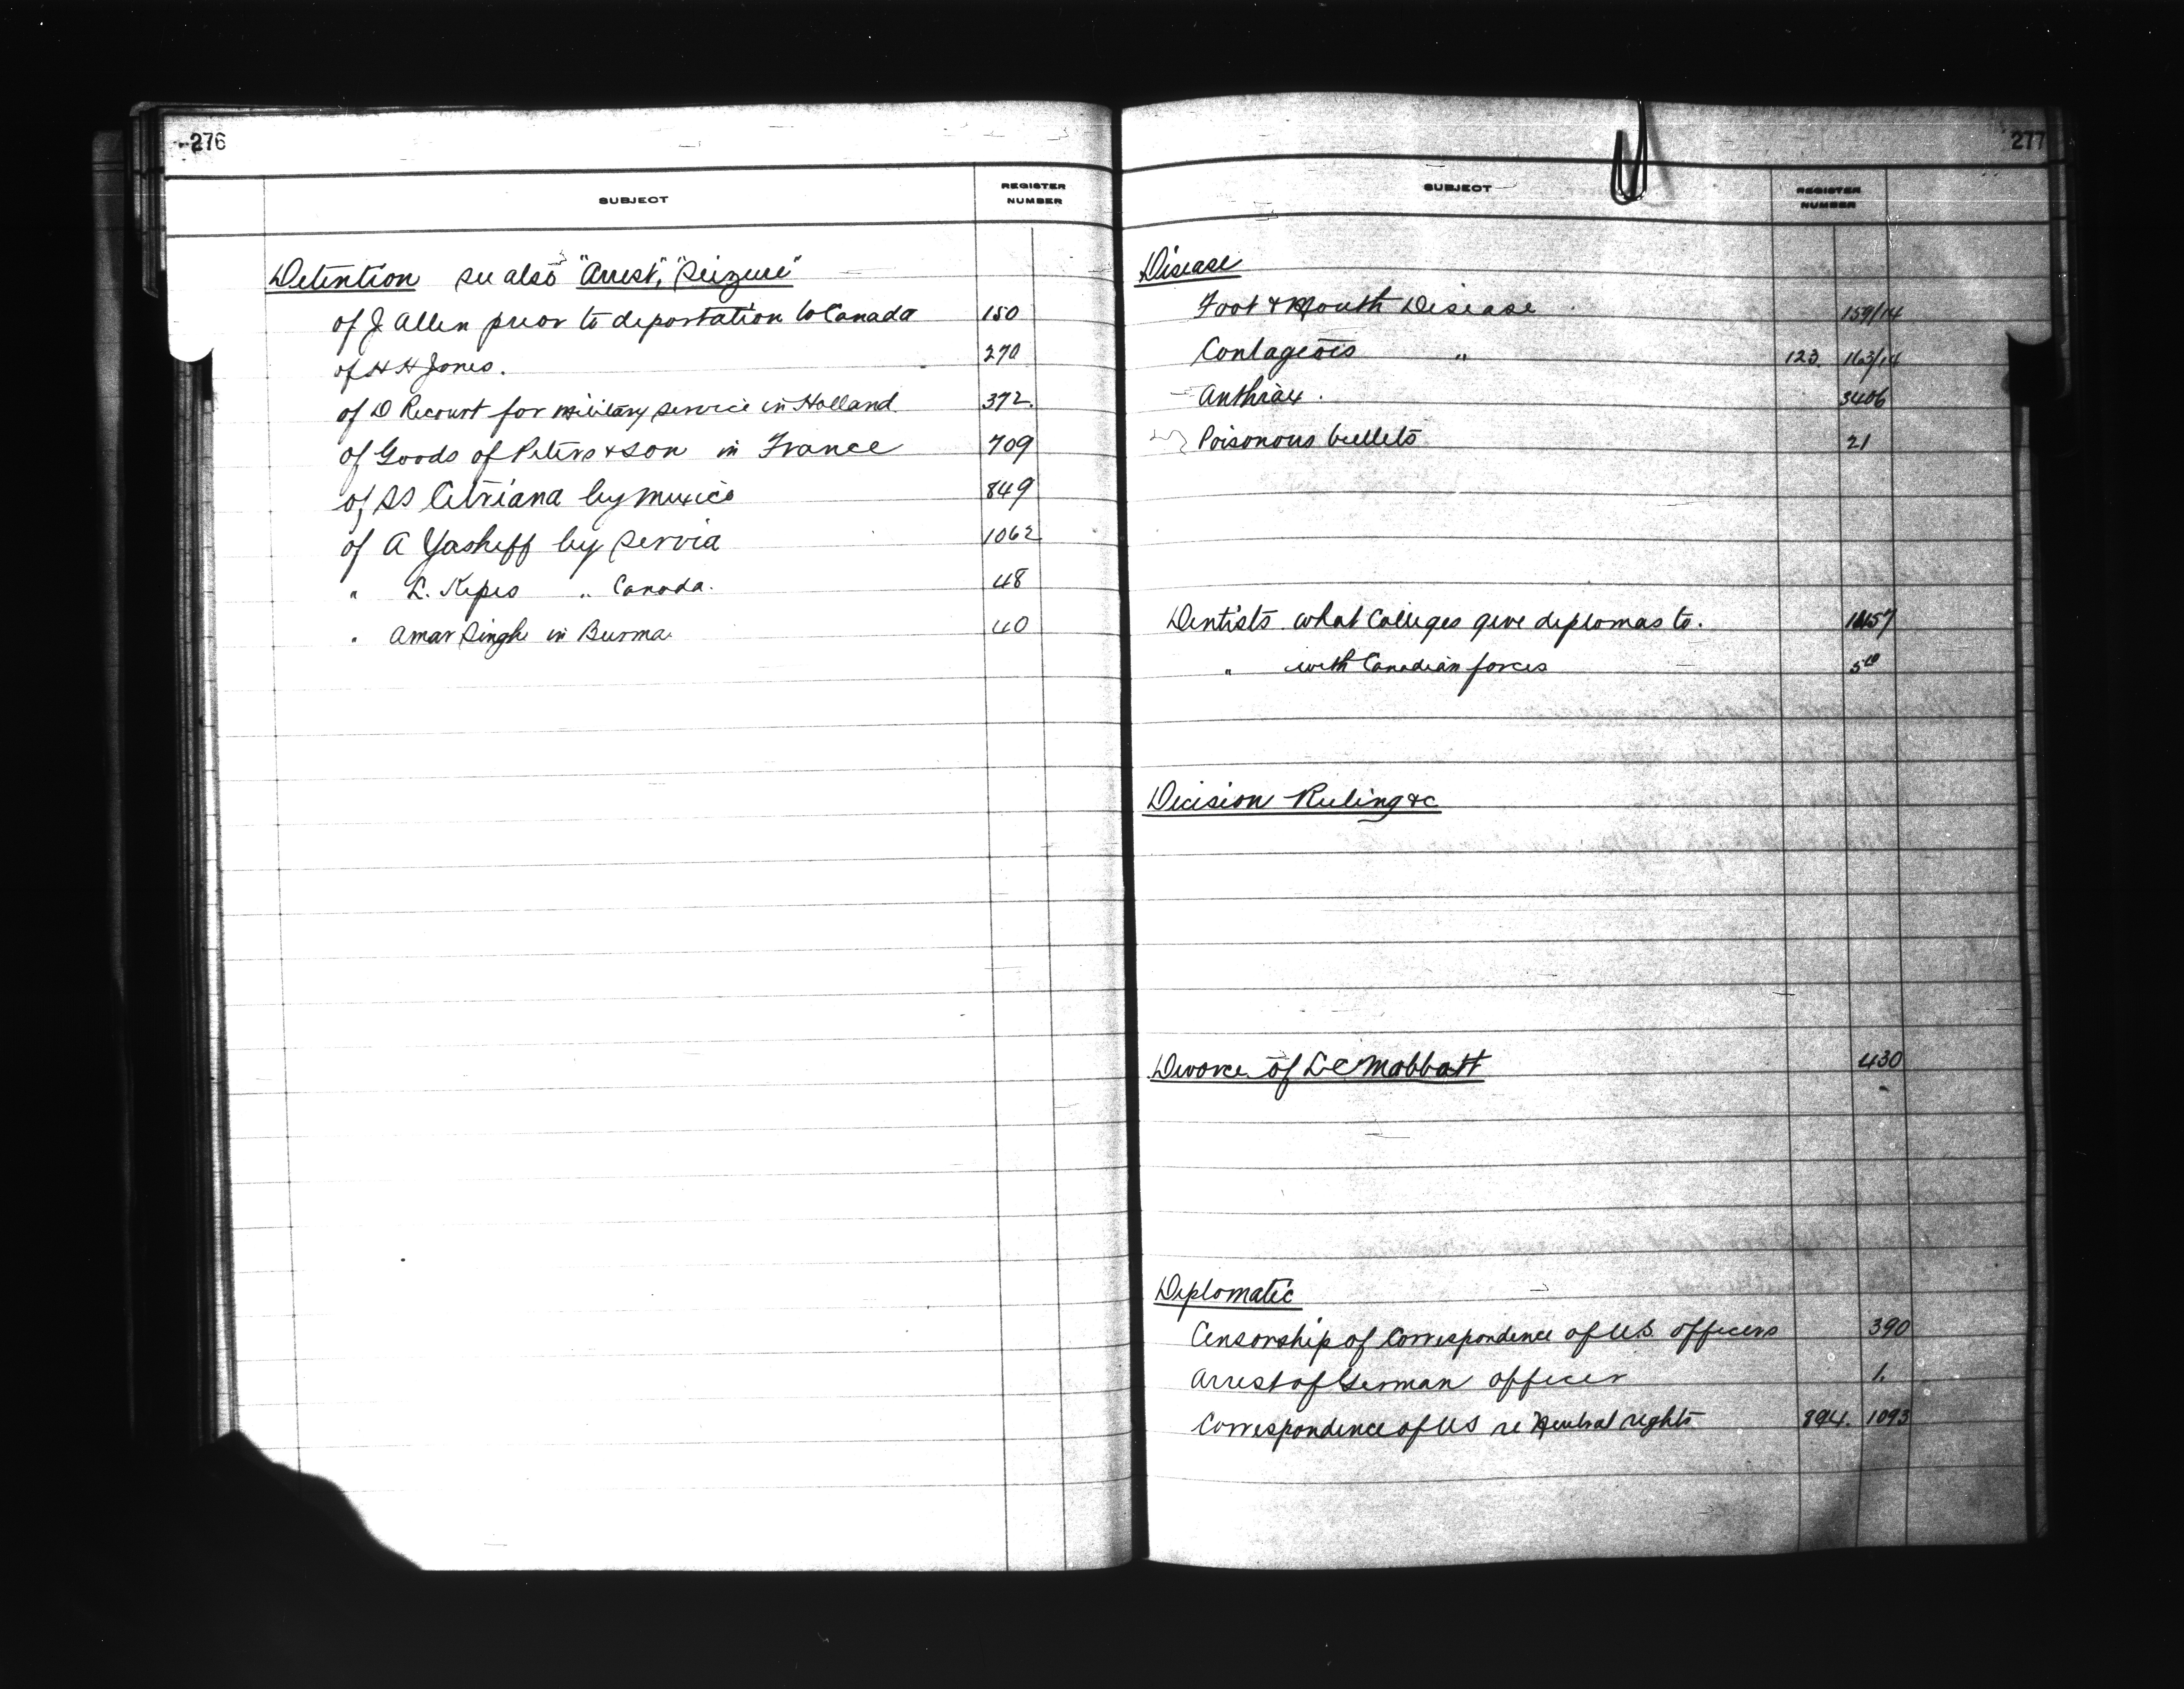 276
SUBJECT REGISTER NUMBER
Detention see also "Arrest", "Seizure"
of J Allen prior to deportation to Canada 150
of H H Jones. 270
of D Recourt for military service in Holland 372.
of Goods of Peters & Son in France 709
of SS Citriana by Mexico 849
of A Yasheff by Servia 1062
" L. Kepes " Canada. 48
" Amar Singh in Burma. 40
277
SUBJECT REGISTER NUMBER
Disease
Foot & Mouth Disease 159/14
Contageois " 123. 163/14
Anthrax. 3406
Poisonous bullets 21
Dentists what Colleges give diplomas to.
" with Canadian forces
Decision Ruling &c
Divorce of L C Mabbatt 430
Diplomatic
Censorship of Correspondence of U.S. officers 390
Arrest of German officer 1.
Correspondence of US re Neutral rights 894. 1093